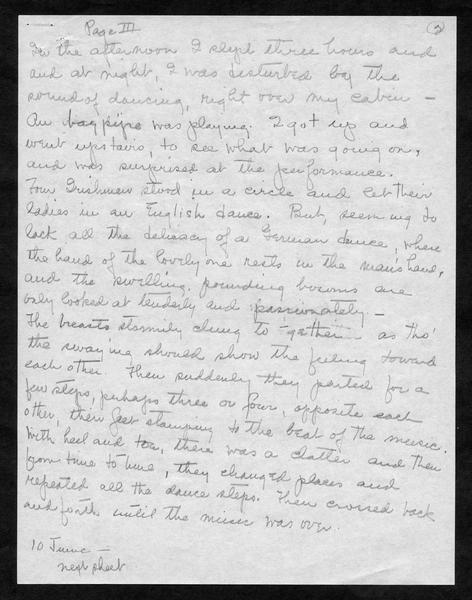 Page III
(2)
In the afternoon I slept three hours and
and at night, I was disturbed by the
sound of dancing, right over my cabin –
An bagpipe was playing. I got up and
went upstairs, to see what was going on,
and was surprised at the performance.
Four Irishmen stood in a circle and let their
ladies in an English dance. But, seeming to
lack all the delicacy of a German dance, where
the hand of the lovely one rests in the man's hand,
and the swelling, pounding bosoms are
only looked at tenderly and passionately. –
The breasts stormily clung to-gether – as tho'
the swaying should show the feeling toward
each other. Then suddenly they parted for a
few steps, perhaps three or four, opposite each
other, their feet stamping to the beat of the music.
With heel and toe, there was a clatter and then
from time to time, they changed places and
repeated all the dance steps. Then crossed back
and forth until the music was over.
10 June –
next sheet